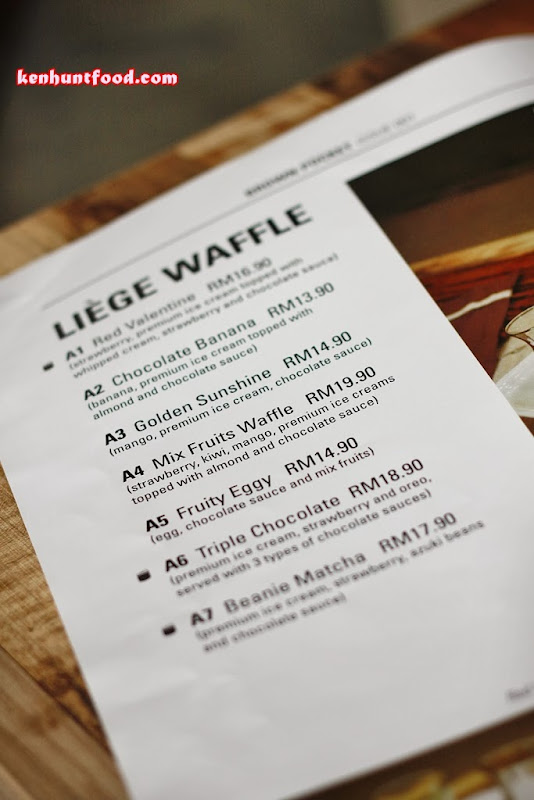 kenhuntfood.com
BROWN POCKET
LIÈGE WAFFLE
A1 Red Valentine RM16.90
(strawberry, premium ice cream topped with
whipped cream, strawberry and chocolate sauce)
A2 Chocolate Banana RM13.90
(banana, premium ice cream topped with
almond and chocolate sauce)
A3 Golden Sunshine RM14.90
(mango, premium ice cream, chocolate sauce)
A4 Mix Fruits Waffle RM19.90
(strawberry, kiwi, mango, premium ice creams
topped with almond and chocolate sauce)
A5 Fruity Eggy RM14.90
(egg, chocolate sauce and mix fruits)
A6 Triple Chocolate RM18.90
(premium ice cream, strawberry and oreo,
served with 3 types of chocolate sauces)
A7 Beanie Matcha RM17.90
(premium ice cream, strawberry, azuki beans
and chocolate sauce)